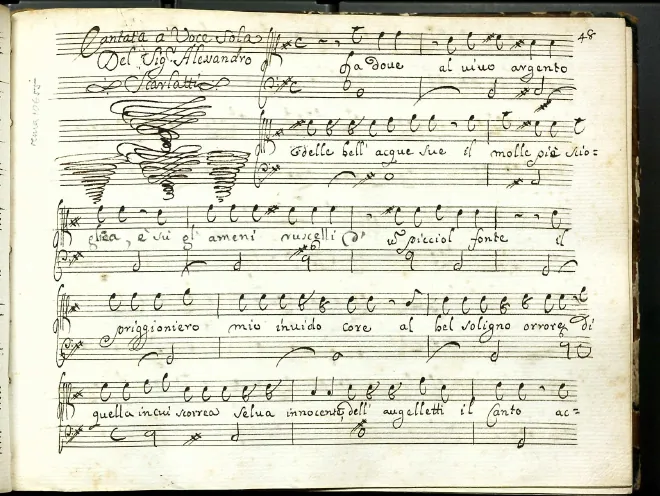 Cantata a Voce Sola
Del Sig.r Alessandro
Scarlatti
48
Là dove al vivo argento
delle bell' acque sue il molle piè scio=
glea, e sù gl' ameni ruscelli d' un picciol fonte il
priggioniero mio invido core al bel soligno orrore di
quella in cui scorrea selva innocente, dell' augelletti il Canto ac=